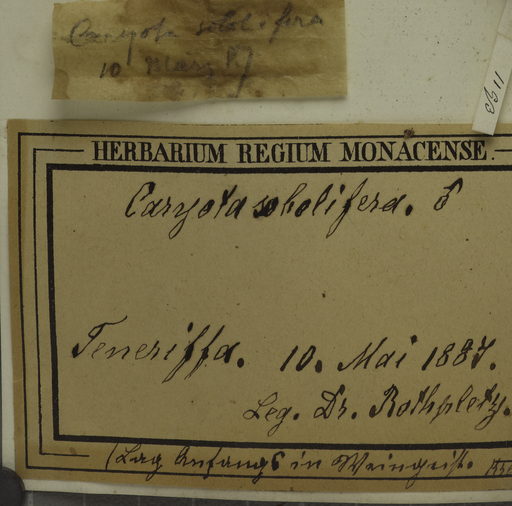 Caryota sobolifera
10 März 87
HERBARIUM REGIUM MONACENSE.
Caryota sobolifera. ♂
Teneriffa. 10. Mai 1887.
Leg. Dr. Rothpletz.
(Lag Anfangs in Weingeist.